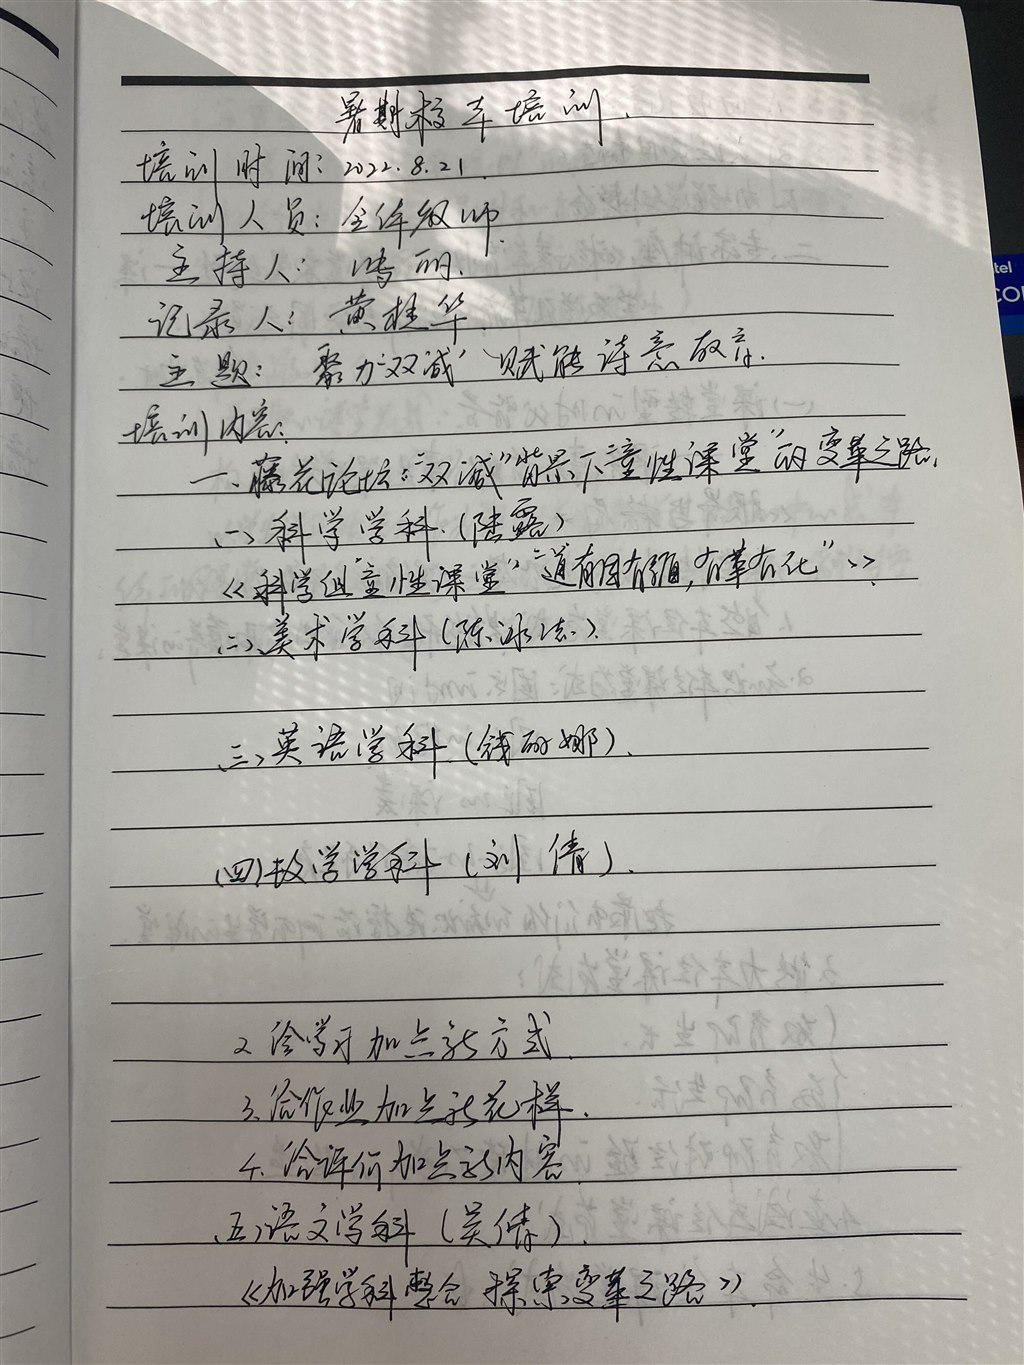 暑期校本培训.
培训时间:2022.8.21.
培训人员:全体教师.
主持人:鸣丽.
记录人:黄桂华.
主题:聚力“双减” 赋能诗意教育.
培训内容:
一、藤花论坛:“双减”背景下“童性课堂”的变革之路.
(一)科学学科.(陆露)
《科学组“童性课堂”“道有因有循,有革有化”》.
(二)美术学科(陈).
(三)英语学科.(钱丽娜).
(四)数学学科(刘倩).
2.给学习加点新方式.
3.给作业加点新花样.
4.给评价加点新内容.
(五)语文学科(吴倩).
《加强学科整合 探索变革之路》.
tel
CO